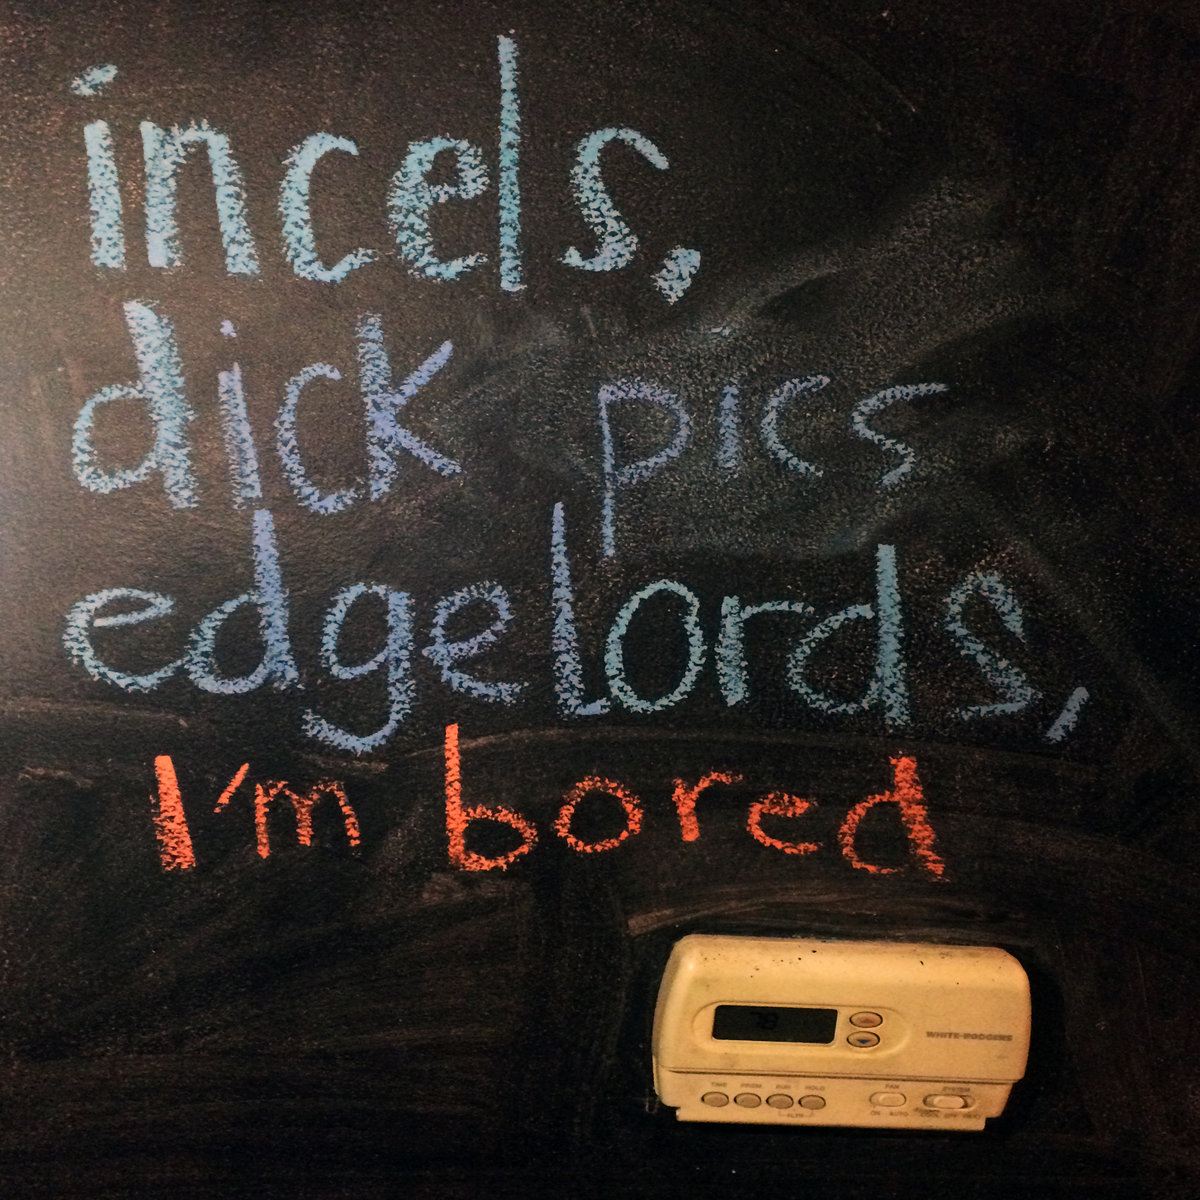 incels,
dick pics
edgelords,
I'm bored
78
WHITE-RODGERS
TIME PRGM RUN HOLD
FAN
SYSTEM
ON AUTO
COOL OFF HEAT